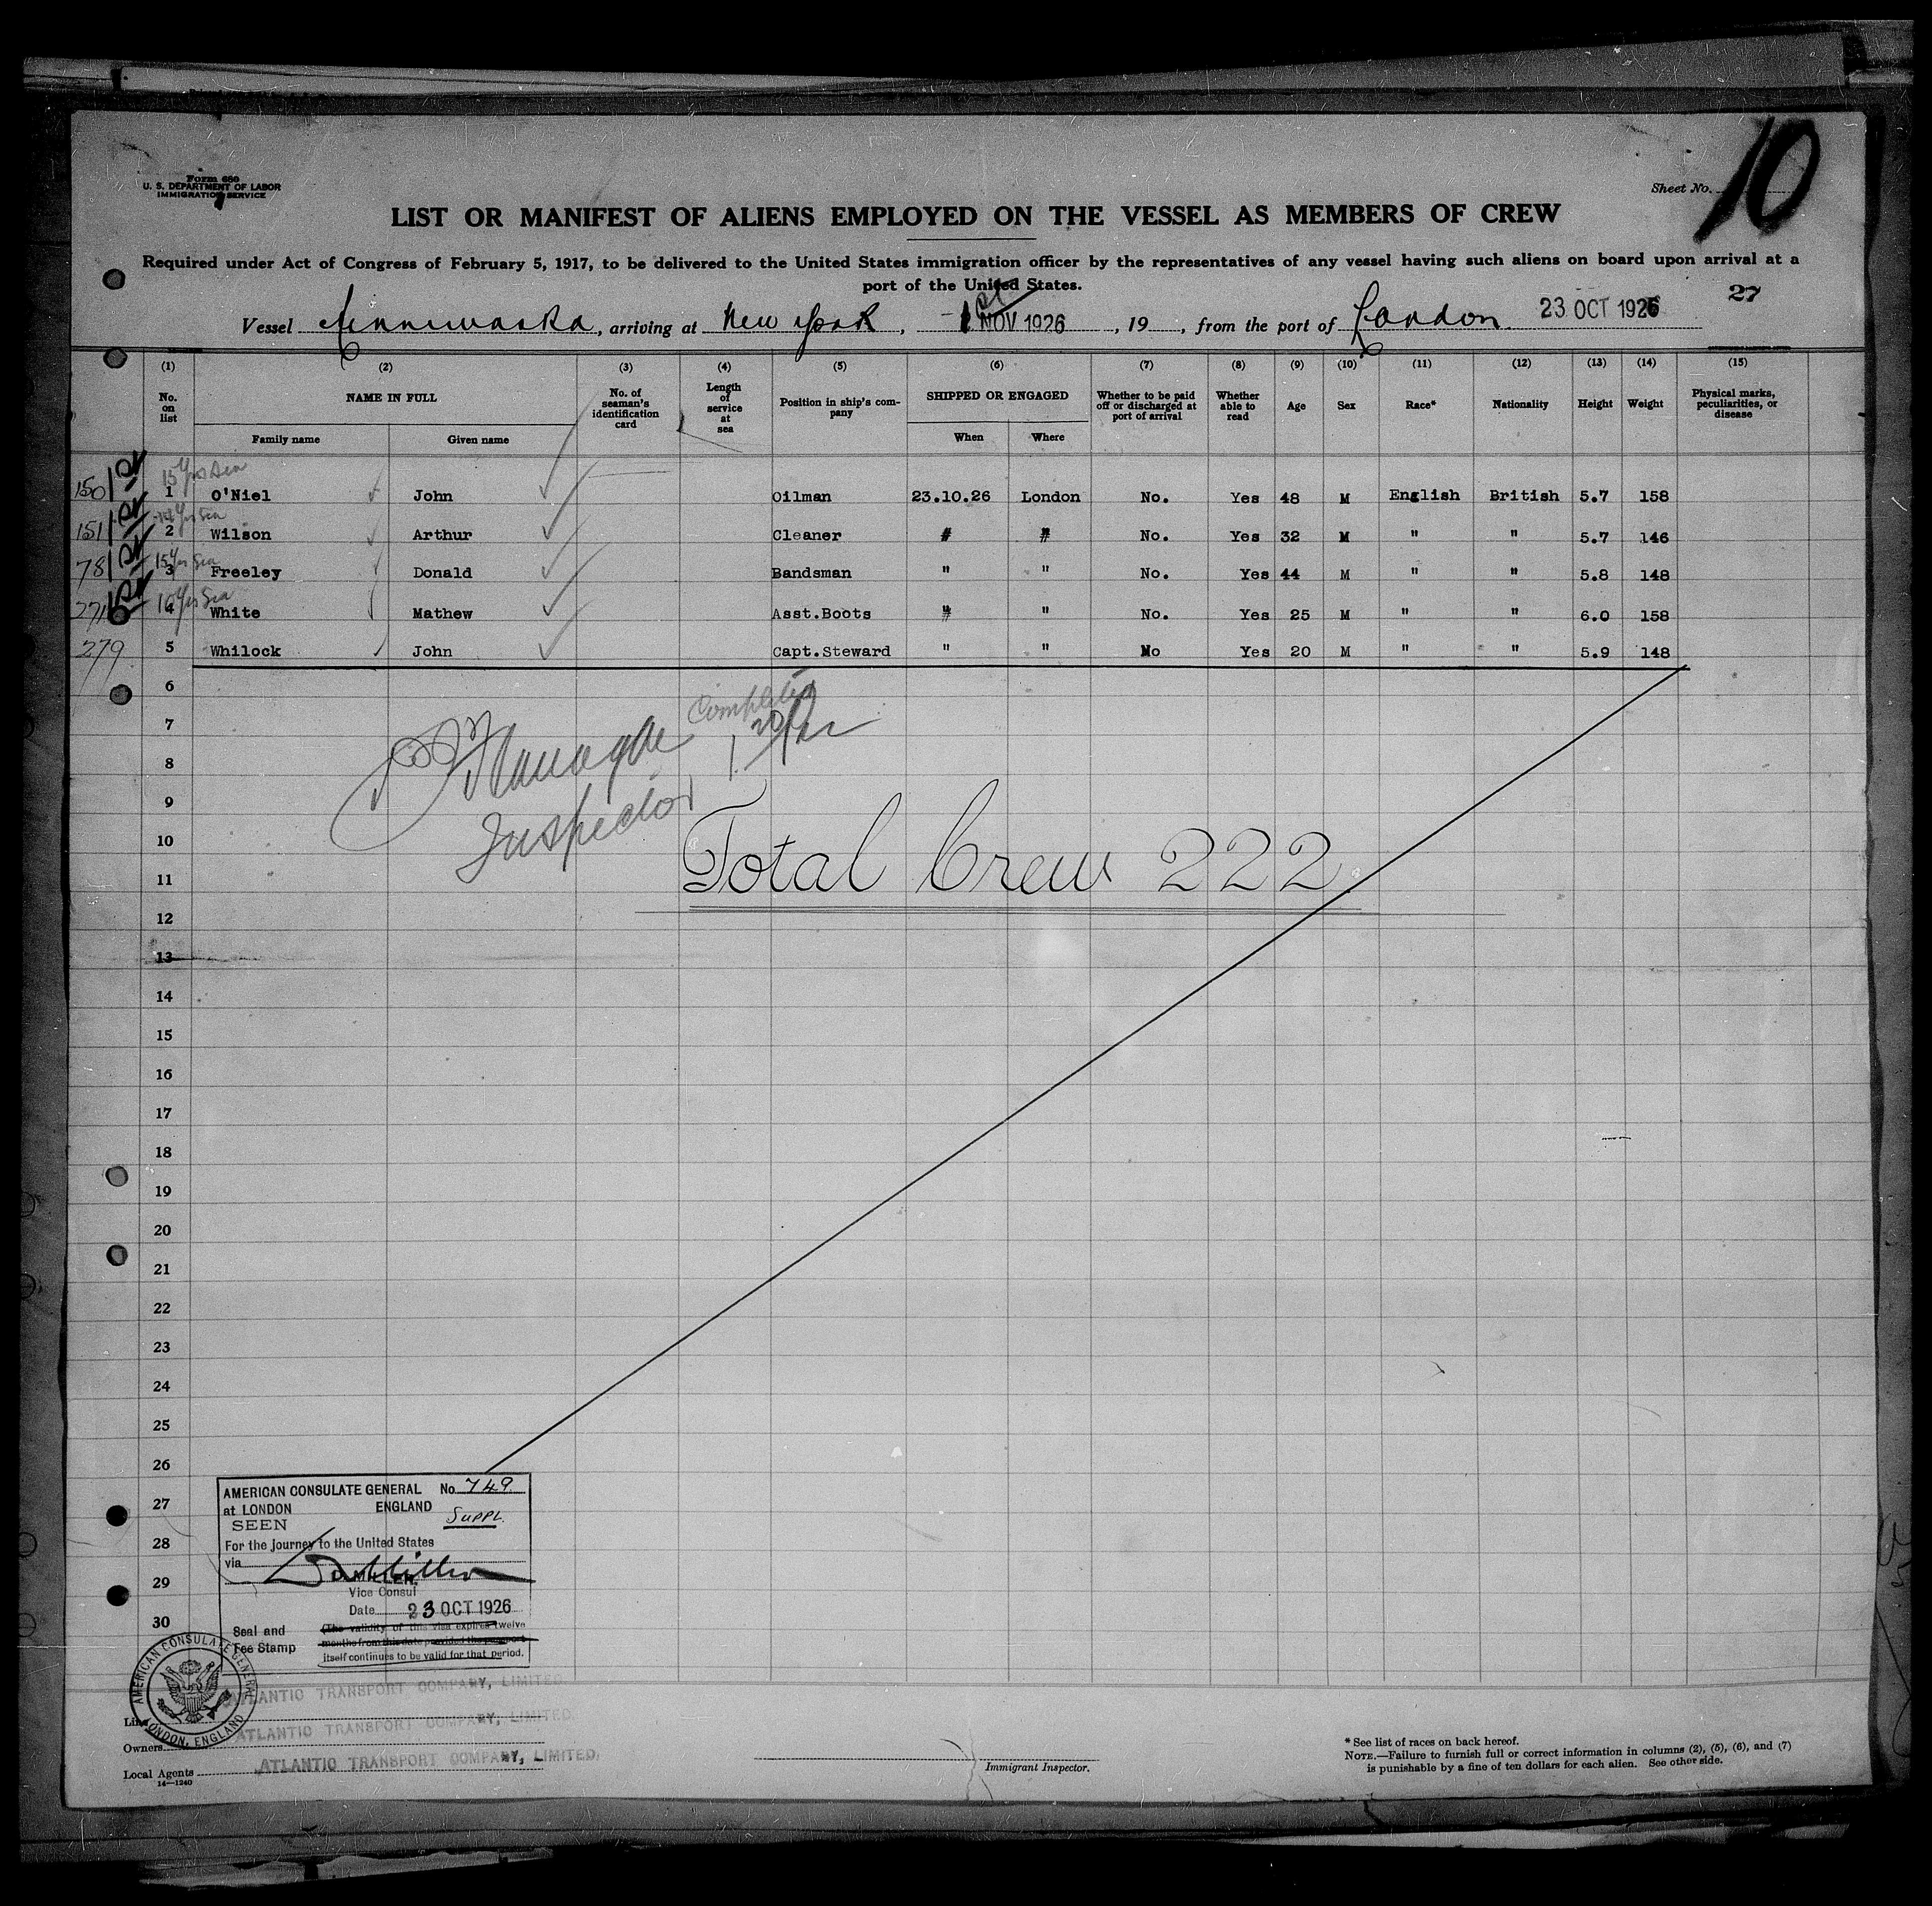 Form 680
U. S. DEPARTMENT OF LABOR
IMMIGRATION SERVICE
Sheet No. 10
LIST OR MANIFEST OF ALIENS EMPLOYED ON THE VESSEL AS MEMBERS OF CREW
Required under Act of Congress of February 5, 1917, to be delivered to the United States immigration officer by the representatives of any vessel having such aliens on board upon arrival at a
port of the United States.
27
Vessel Minnewaska, arriving at New York, 1st NOV 1926, 19, from the port of London 23 OCT 1926
(1) (2) (3) (4) (5) (6) (7) (8) (9) (10) (11) (12) (13) (14) (15)
No. on list NAME IN FULL No. of seaman's identification card Length of service at sea Position in ship's company SHIPPED OR ENGAGED Whether to be paid off or discharged at port of arrival Whether able to read Age Sex Race* Nationality Height Weight Physical marks, peculiarities, or disease
Family name Given name When Where
15 Yrs Sea
150 1 O'Niel John Oilman 23.10.26 London No. Yes 48 M English British 5.7 158
Yrs Sea
151 2 Wilson Arthur Cleaner " " No. Yes 32 M " " 5.7 146
15 Yrs Sea
78 3 Freeley Donald Bandsman " " No. Yes 44 M " " 5.8 148
10 Yrs Sea
271 4 White Mathew Asst.Boots " " No. Yes 25 M " " 6.0 158
279 5 Whilock John Capt.Steward " " No Yes 20 M " " 5.9 148
6
7
8
9
10
11
12
13
14
15
16
17
18
19
20
21
22
23
24
25
26
27
28
29
30
Completed
Inspector
Total Crew 222
AMERICAN CONSULATE GENERAL No. 749
at LONDON ENGLAND
SEEN SUPPL.
For the journey to the United States
via
D. MILLER
Vice Consul
Date 23 OCT 1926
Seal and Fee Stamp
(The validity of this visa expires twelve
months from this date provided the passport
itself continues to be valid for that period.
AMERICAN CONSULATE GENERAL
LONDON, ENGLAND
Line ATLANTIC TRANSPORT COMPANY, LIMITED
Owners ATLANTIC TRANSPORT COMPANY, LIMITED
Local Agents ATLANTIC TRANSPORT COMPANY, LIMITED
14—1240
Immigrant Inspector.
* See list of races on back hereof.
NOTE.—Failure to furnish full or correct information in columns (2), (5), (6), and (7)
is punishable by a fine of ten dollars for each alien. See other side.